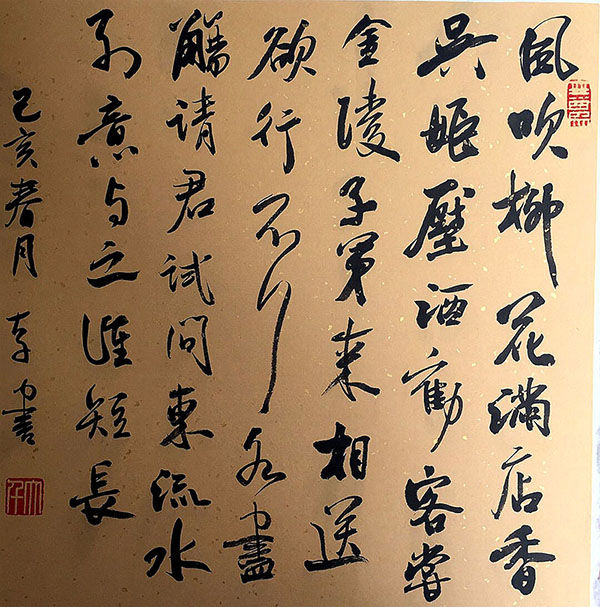 風吹柳花滿店香
吳姬壓酒勸客嘗
金陵子弟来相送
欲行不行各盡
觴請君試問東流水
别意与之誰短長
己亥春月 書